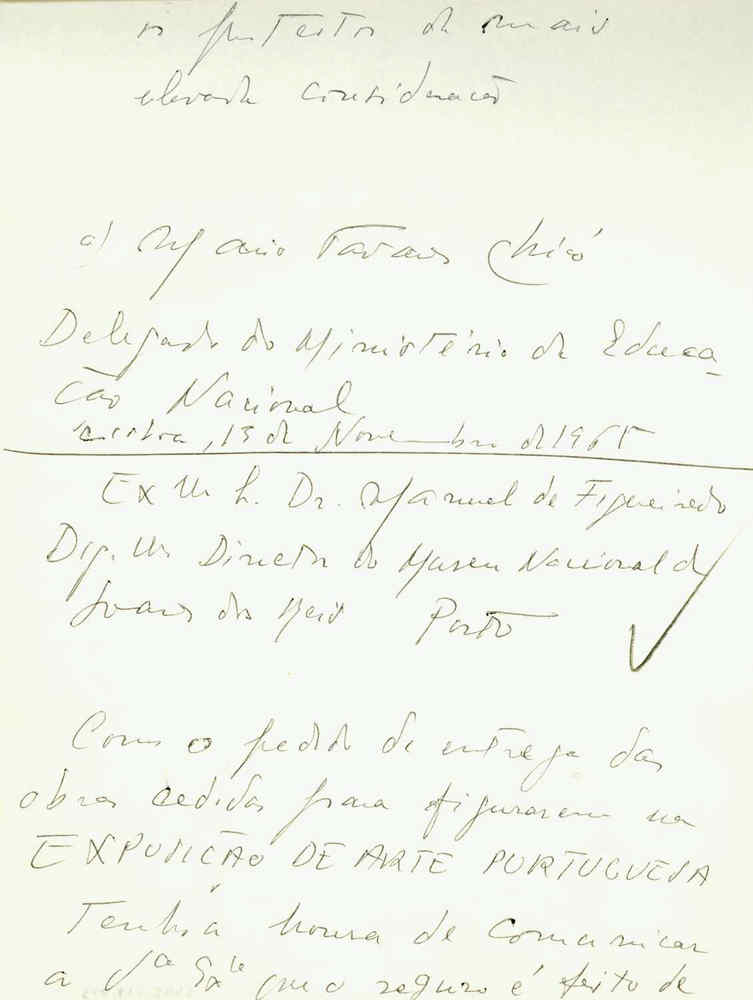 os protestos da mais
elevada consideração
a) Mario Tavares Chicó
Delegado do Ministério da Educa-
ção Nacional
Lisboa, 13 de Novembro de 1965
Ex mo S. Dr. Manuel de Figueiredo
Dig. mo Director do Museu Nacional de
Soares dos Reis Porto
Como o pedido de entrega das
obras cedidas para figurarem na
EXPOSIÇÃO DE ARTE PORTUGUESA
Tenho a honra de comunicar
a Vª Exia que o seguro é feito de